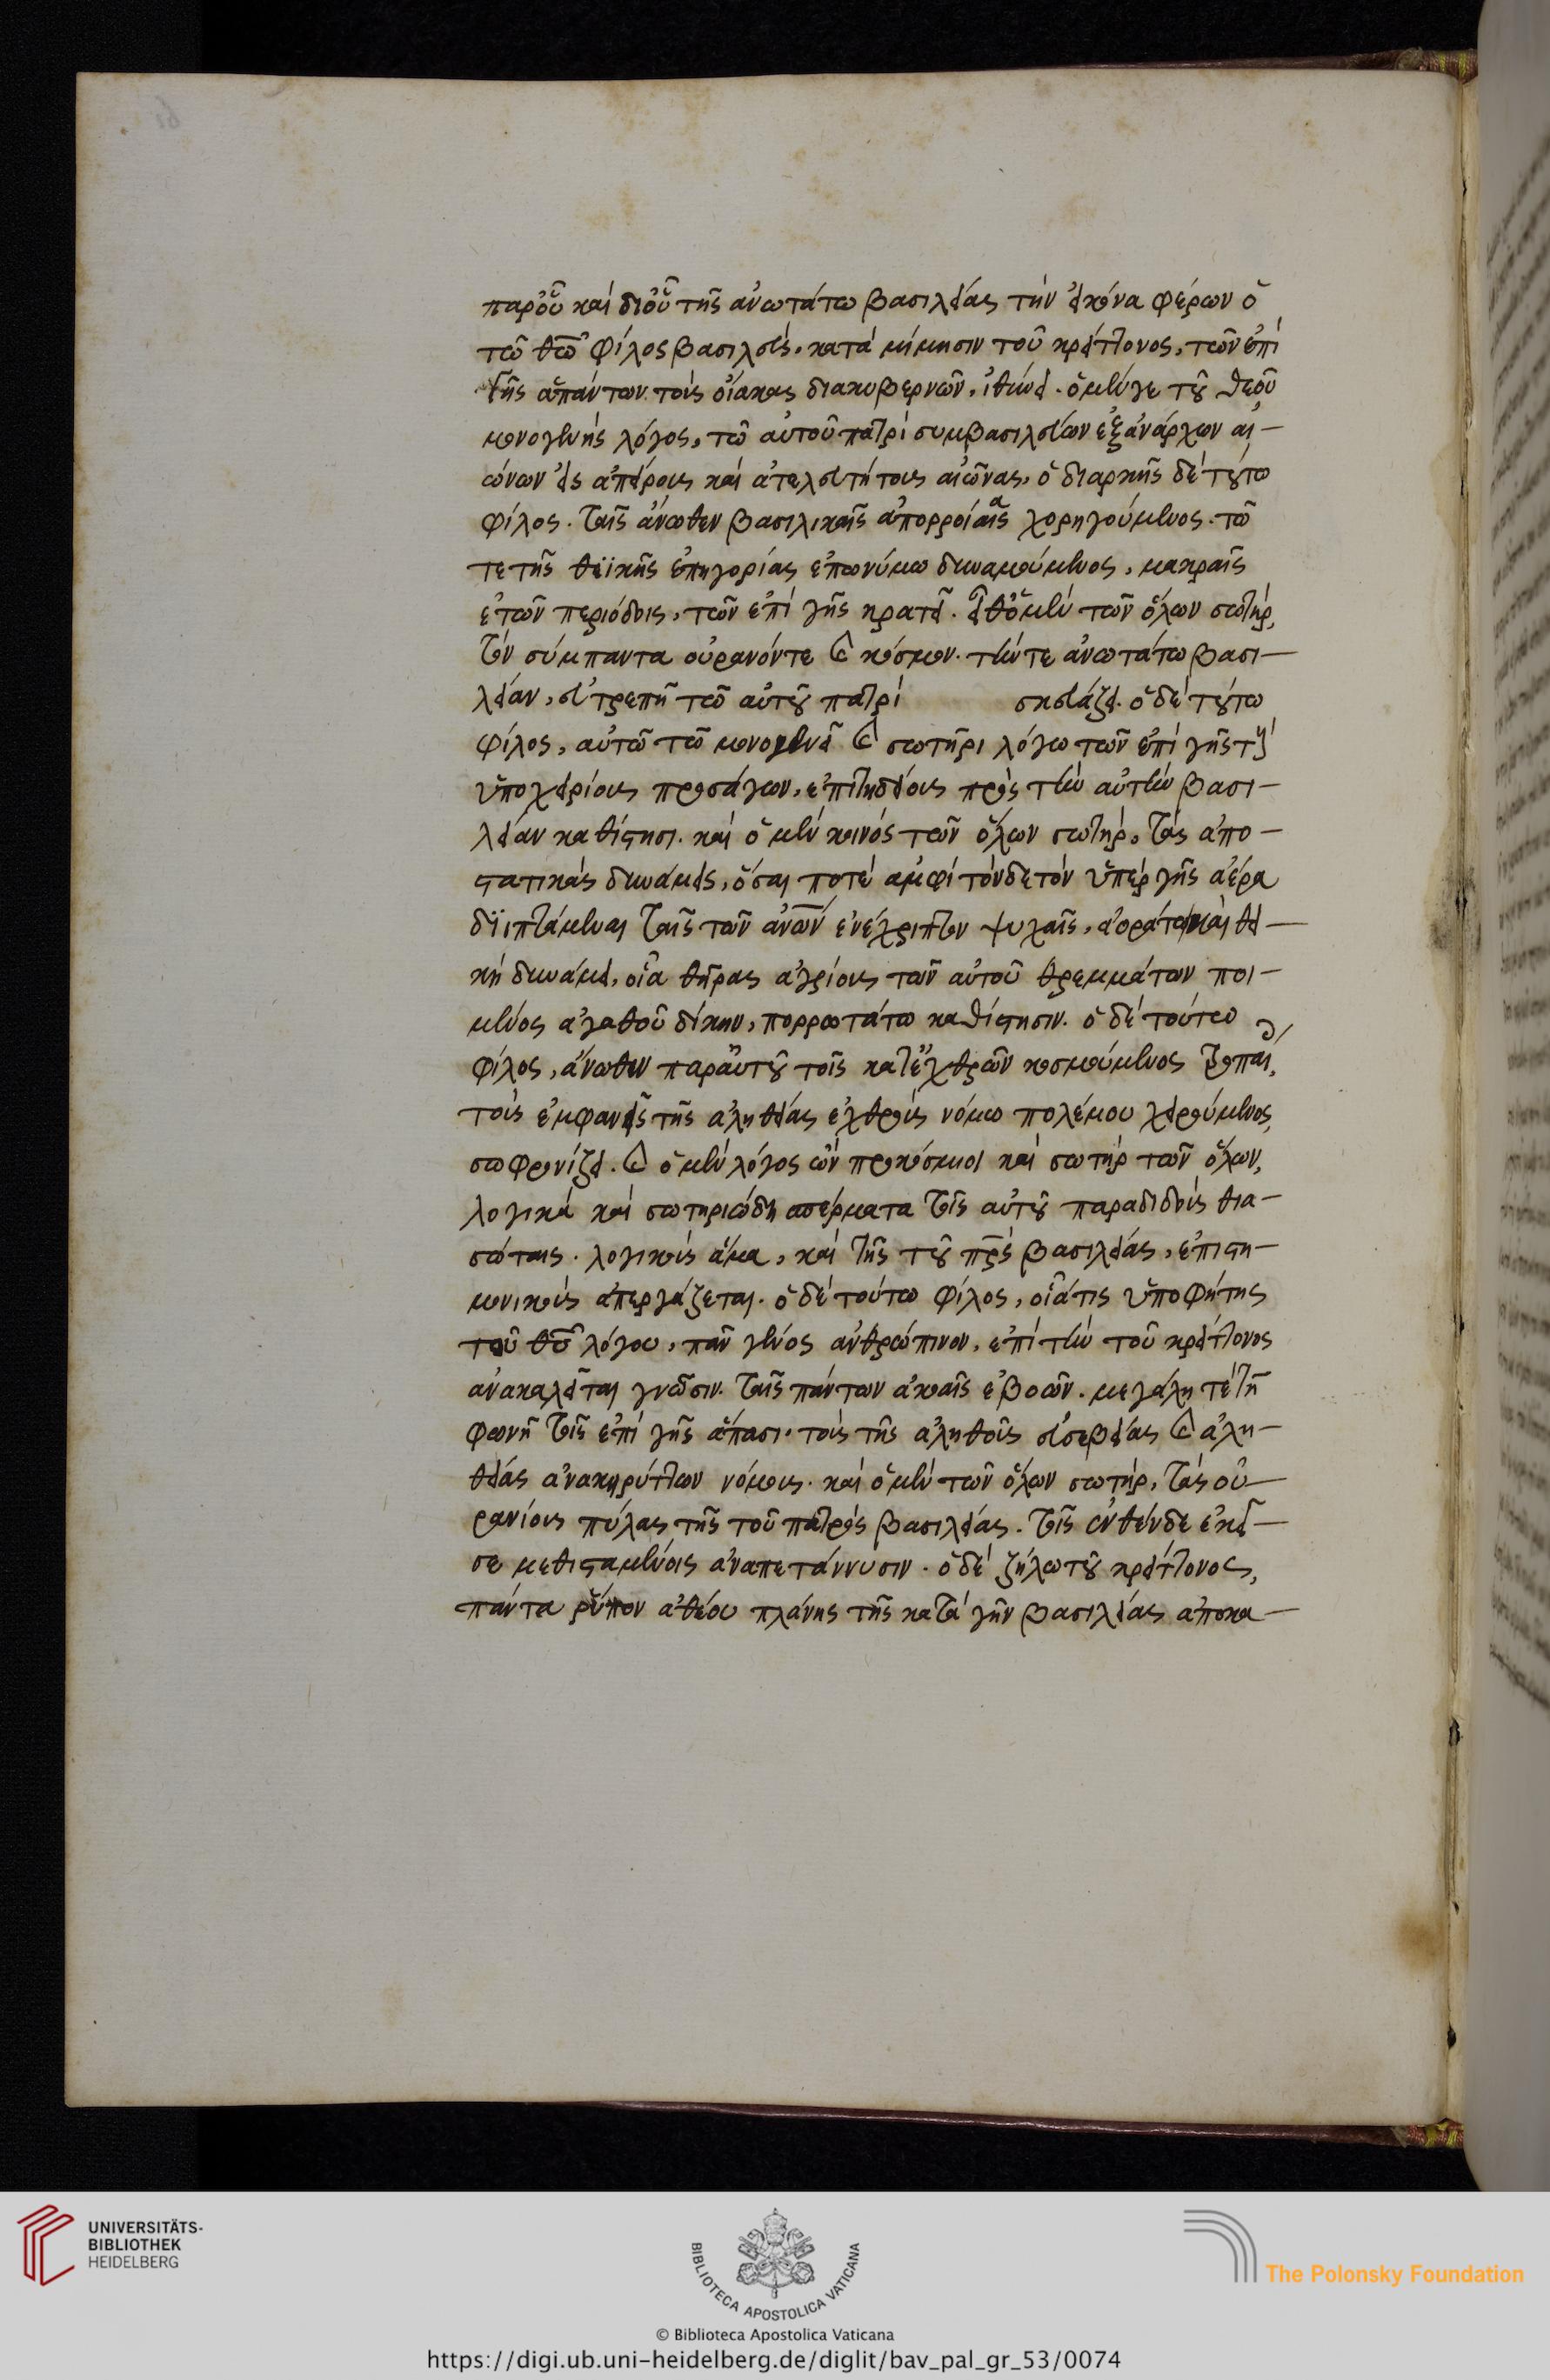 παρ' οὗ καὶ δι' οὗ τῆς ἀνωτάτω βασιλείας τὴν εἰκόνα φέρων ὁ
τῶ θῶ φίλος βασιλεύς, κατὰ μίμησιν τοῦ κρείττονος, τῶν ἐπὶ
γῆς ἁπάντων τοὺς οἴακας διακυβερνῶν, ἰθύνει. ὁ μέν γε τοῦ θεοῦ
μονογενὴς λόγος, τῶ αὐτοῦ πατρὶ συμβασιλεύων ἐξ ἀνάρχων αἰ-
ώνων εἰς ἀπείρους καὶ ἀτελευτήτους αἰῶνας, ὁ διαρκὴς δὲ τούτω
φίλος. ταῖς ἄνωθεν βασιλικαῖς ἀπορροίαις χορηγούμενος. τῶ
τε τῆς θεϊκῆς ἐπηγορίας ἐπωνύμω δυναμούμενος, μακραῖς
ἐτῶν περιόδοις, τῶν ἐπὶ γῆς κρατεῖ. εἶθ' ὁ μὲν τῶν ὅλων σωτὴρ,
τὸν σύμπαντα οὐρανόν τε καὶ κόσμον. τήν τε ἀνωτάτω βασι-
λείαν, εὐτρεπῆ τῶ αὐτοῦ πατρὶ σκευάζει. ὁ δὲ τούτω
φίλος, αὐτῶ τῶ μονογενεῖ καὶ σωτῆρι λόγω τῶν ἐπὶ γῆς τοὺς
ὑποχειρίους προσάγων, ἐπιτηδείους πρὸς τὴν αὐτὴν βασι-
λείαν καθίστησι. καὶ ὁ μὲν κοινὸς τῶν ὅλων σωτὴρ, τὰς ἀπο-
στατικὰς δυνάμεις, ὅσαι ποτὲ ἀμφὶ τόνδε τὸν ὑπὲρ γῆς ἀέρα
διϊπτάμεναι ταῖς τῶν ἀνῶν ἐνέχριπτον ψυχαῖς, ἀοράτω καὶ θεϊ-
κῇ δυνάμει, οἷα θῆρας ἀγρίους τῶν αὐτοῦ θρεμμάτων ποι-
μένος ἀγαθοῦ δίκην, πορρωτάτω καθίστησιν. ὁ δὲ τούτω
φίλος, ἄνωθεν παρ' αὐτοῦ τοῖς κατ' ἐχθρῶν κοσμούμενος τροπαί,
τοὺς ἐμφανεῖς τῆς ἀληθείας ἐχθροὺς νόμω πολέμου χειρούμενος,
σωφρονίζει. καὶ ὁ μὲν λόγος ὢν προκόσμιος καὶ σωτὴρ τῶν ὅλων,
λογικὰ καὶ σωτηριώδη σπέρματα τοῖς αὐτοῦ παραδιδοὺς θια-
σώταις. λογικοὺς ἅμα, καὶ τῆς τοῦ πρς βασιλείας, ἐπιστη-
μονικοὺς ἀπεργάζεται. ὁ δὲ τούτω φίλος, οἷά τις ὑποφήτης
τοῦ θῦ λόγου, πᾶν γένος ἀνθρώπινον, ἐπὶ τὴν τοῦ κρείττονος
ἀνακαλεῖται γνῶσιν. ταῖς πάντων ἀκοαῖς ἐβοῶν. μεγάλη τε τῆ
φωνῆ τοῖς ἐπὶ γῆς ἅπασι. τοὺς τῆς ἀληθοῦς εὐσεβείας καὶ ἀλη-
θείας ἀνακηρύττων νόμους. καὶ ὁ μὲν τῶν ὅλων σωτὴρ, τὰς οὐ-
ρανίους πύλας τῆς τοῦ πατρὸς βασιλείας. τοῖς ἐνθένδε ἐκεῖ-
σε μεθισταμένοις ἀναπετάννυσιν. ὁ δὲ ζήλω τοῦ κρείττονος,
πάντα ῥύπον ἀθέου πλάνης τῆς κατὰ γῆν βασιλείας ἀποκα-
UNIVERSITÄTS-
BIBLIOTHEK
HEIDELBERG
BIBLIOTECA APOSTOLICA VATICANA
The Polonsky Foundation
© Biblioteca Apostolica Vaticana
https://digi.ub.uni-heidelberg.de/diglit/bav_pal_gr_53/0074